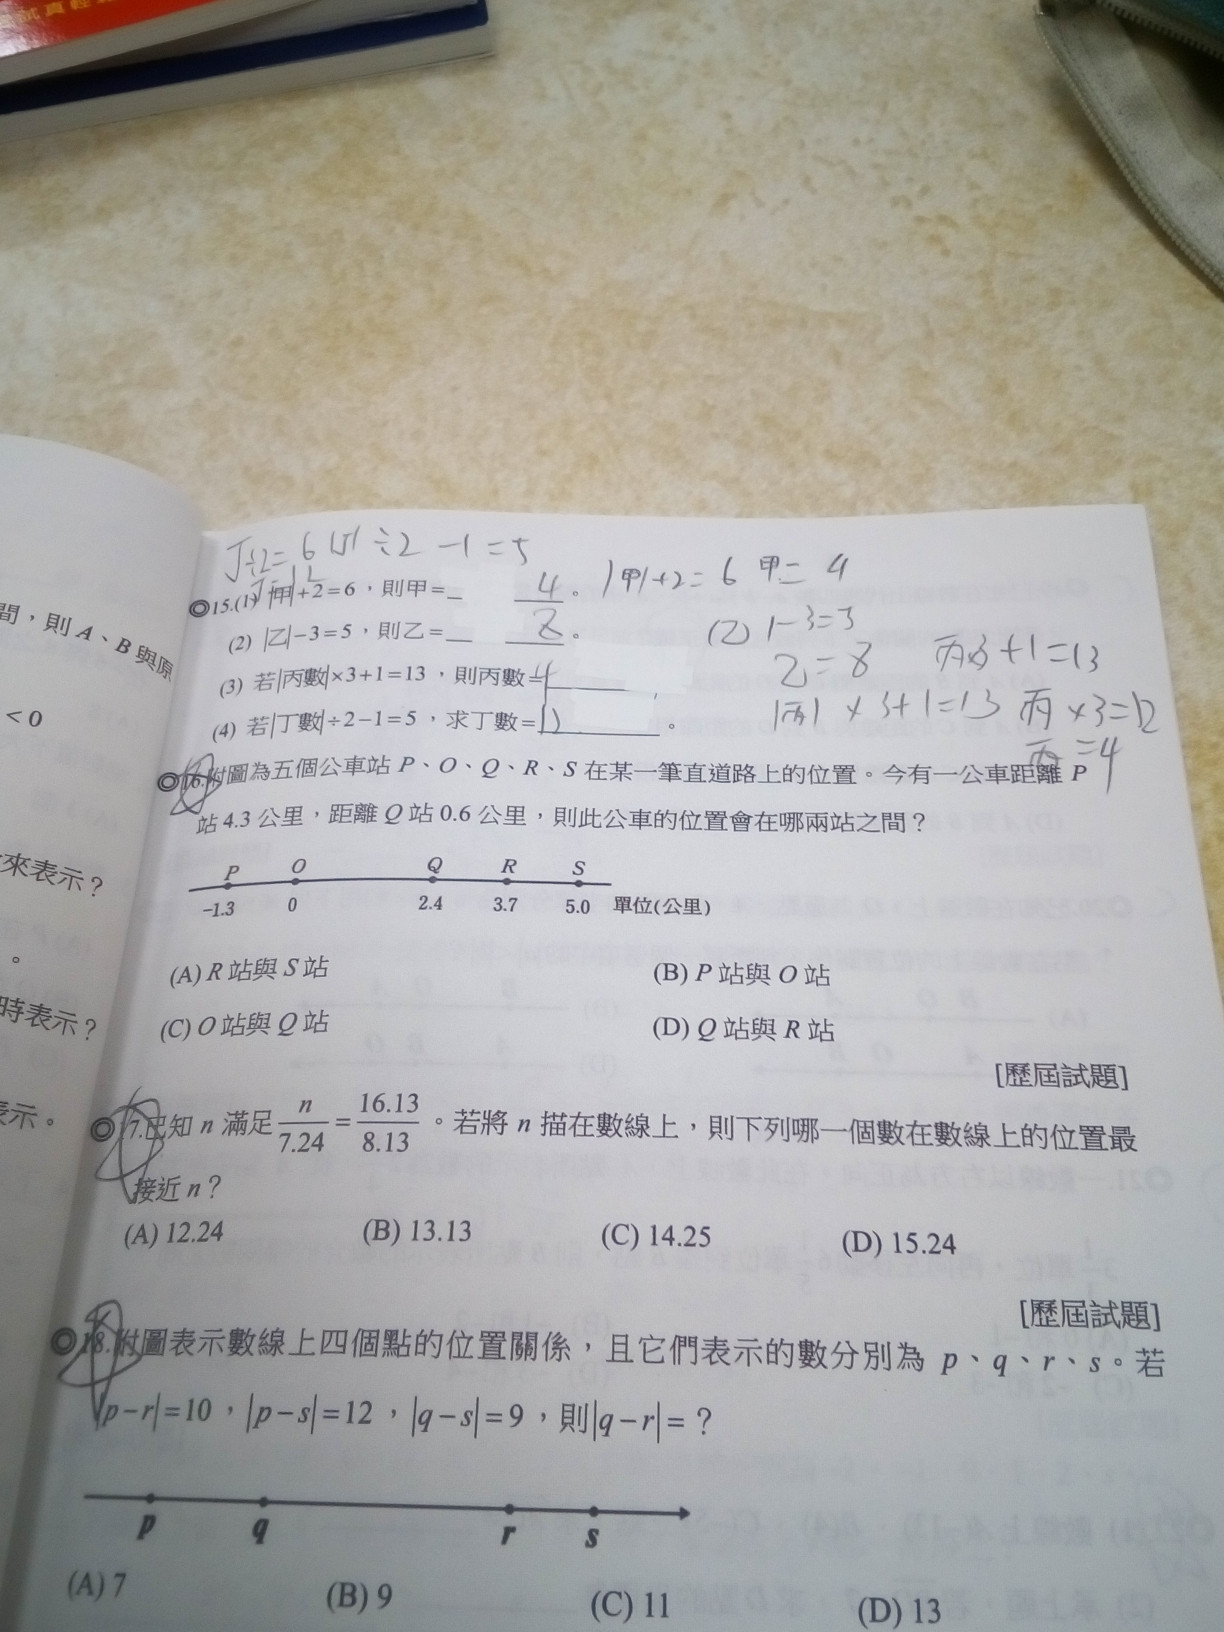 試真輕
丁÷2=6 |丁|÷2-1=5
丁=12
◎15.(1) |甲|+2=6，則甲=_ 4 。 |甲|+2=6 甲=4
(2) |乙|-3=5，則乙=__ 8 。 (2) |-3=5
乙=8 丙×3+1=13
(3) 若|丙數|×3+1=13，則丙數=4______，
|丙|×3+1=13 丙×3=12
(4) 若|丁數|÷2-1=5，求丁數=12______。
丙=4
◎16.附圖為五個公車站 P、O、Q、R、S 在某一筆直道路上的位置。今有一公車距離 P
站 4.3 公里，距離 Q 站 0.6 公里，則此公車的位置會在哪兩站之間？
P O Q R S
-1.3 0 2.4 3.7 5.0 單位(公里)
(A) R 站與 S 站 (B) P 站與 O 站
(C) O 站與 Q 站 (D) Q 站與 R 站
[歷屆試題]
◎17.已知 n 滿足 n/7.24 = 16.13/8.13 。若將 n 描在數線上，則下列哪一個數在數線上的位置最
接近 n？
(A) 12.24 (B) 13.13 (C) 14.25 (D) 15.24
[歷屆試題]
◎18.附圖表示數線上四個點的位置關係，且它們表示的數分別為 p、q、r、s。若
|p-r|=10，|p-s|=12，|q-s|=9，則|q-r|=？
p q r s
(A) 7 (B) 9 (C) 11 (D) 13
間，則 A、B 與原
<0
來表示？
。
時表示？
表示。